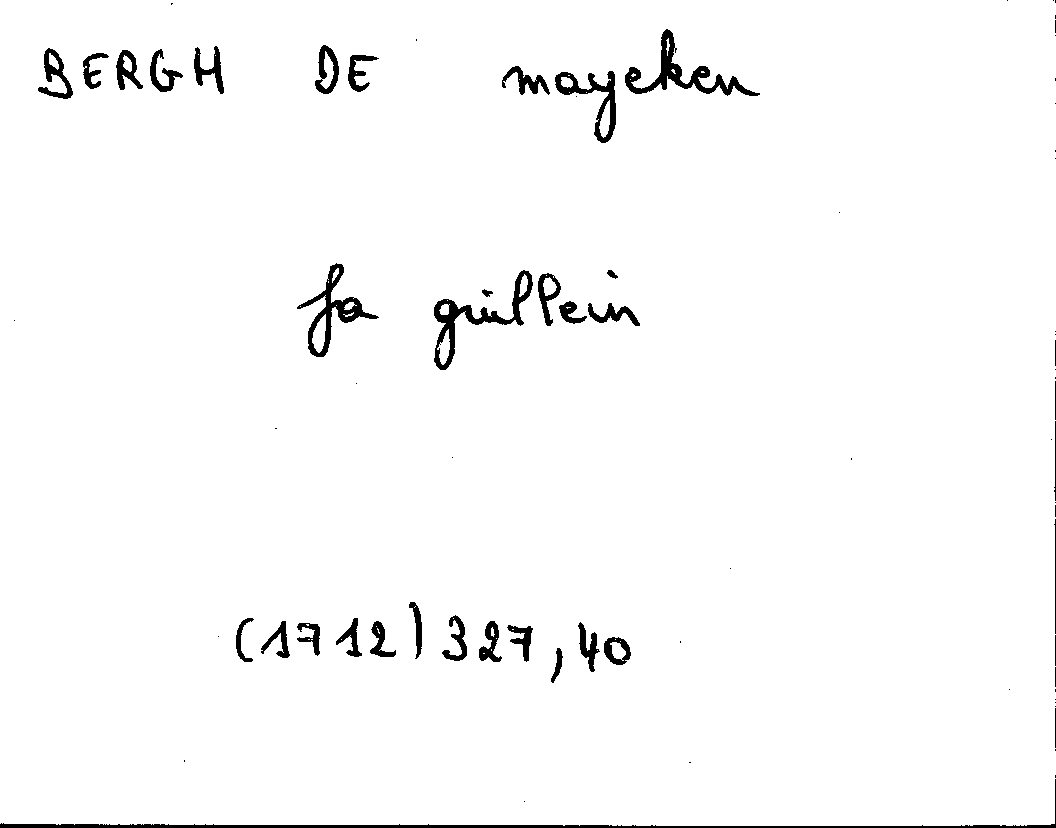 BERGH DE mayeken
fa guillein
(1712) 327,40